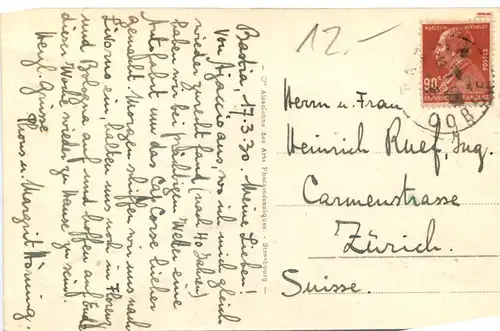 Bastia, 17.3.30. Meine Lieben!
Von Ajaccio aus, wo ich mich gleich
wieder zurecht fand (nach 40 Jahren)
haben wir bei prächtigem Wetter eine
Autofahrt um das Cap Corse hieher
gemacht. Morgen schiffen wir uns nach
Livorno ein, halten uns noch in Florenz
und Bologna auf und hoffen auf Ende
dieser Woche wieder zu Hause zu sein.
Herzl. Grüsse
u. Margrit
Cie Alsacienne des Arts Photomécaniques. - Strasbourg
12.-
MARCELIN BERTHELOT
POSTES
90c
REPUBLIQUE FRANÇAISE
Herrn u. Frau
Heinrich Ruef, Ing.
Carmenstrasse
Zürich.
Suisse.